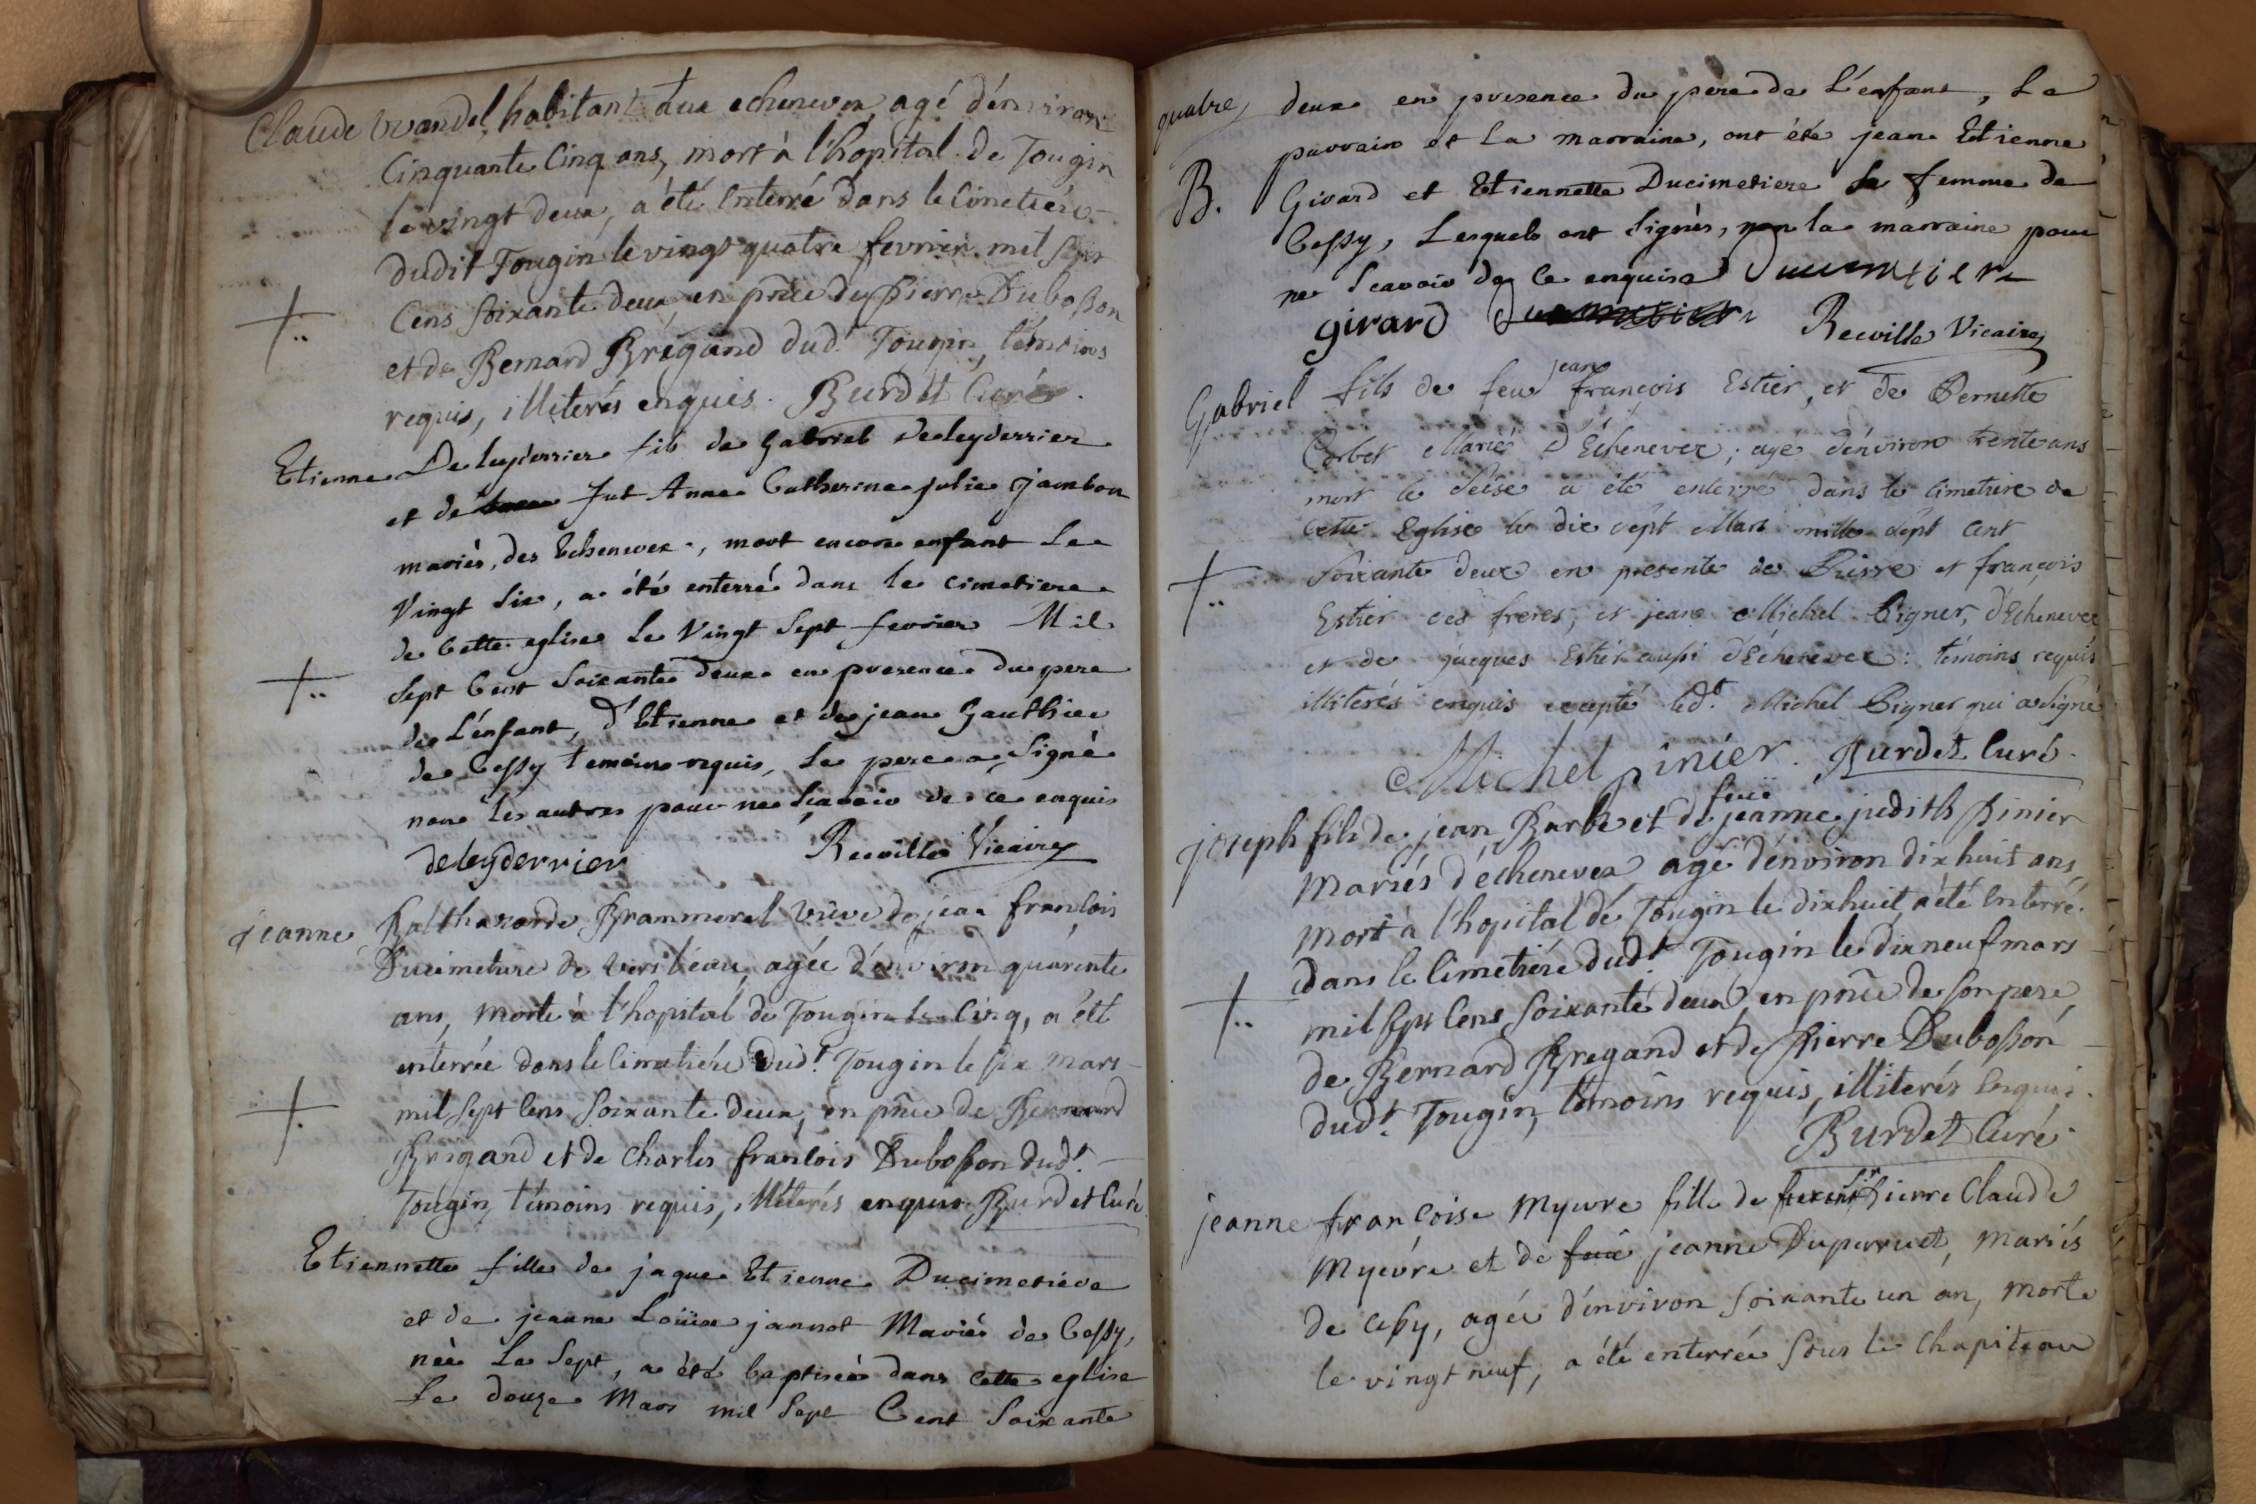 Claude Vvandel, habitant aux echenevex, agé d'environ
Cinquante Cinq ans, mort à l'hopital de Tougin
le vingt deux, a été Enterré dans le Cimetiére
dudit Tougin le vingt quatre fevrier mil sept
Cens soixante deux, en pñce de pierre Duboßon
et de Bernard Brégand dud.t Tougin, témoins
requis, illiterés enquis. Burdet Curé.
Etienne Deleyderrier fils de Gabriel Deleyderrier
et de Jut Anne Catherine julie jambon
mariés, des Echenevex, mort encore enfant Le
Vingt Six, a été enterré dans le cimetiere
de Cette eglise Le Vingt Sept fevrier Mil
Sept Cent Soixante deux en presence du pere
de L'enfant, d'Etienne et de jean Gauthier
de Cessy temoins requis, Le pere a Signé
non Les autres pour ne Sçavoir de ce enquis
deleyderrier Recville Vicaire
jeanne Balthazarde Brammerel vüve de jean françois
Ducimetiere de Vers l'eau, agée d'environ quarente
ans, morte à l'hopital de Tougin le Cinq, a été
enterrée dans le Cimetiére dud.t Tougin le six mars
mil sept Cens soixante deux, en pñce de Bernard
Brégand et de Charles françois Duboßon dud.t
Tougin, témoins requis, illiterés enquis. Burdet Curé.
Etiennette fille de jaque Etienne Ducimetiére
et de jeanne Loüise jannot Mariés de Cessy,
née Le Sept, a été baptisée dans cette eglise
Le douze Mars mil Sept Cent Soixante
quatre deux en presence du pere de L'enfant, Le
parrain et La marraine, ont été jean Etienne
B. Girard et Etiennette Ducimetiere Sa femme de
Cessy, Lesquels ont Signés, non la marraine pour
ne Scavoir de Ce enquise Ducimetiere
girard Recville Vicaire
Gabriel fils de feu jean françois Estier, et de Pernette
Corbet Mariés d'Echenevex; agé d'environ trente ans
mort le seise a été enterré dans le cimetiere de
Cette Eglise le dix sept Mars mille sept cent
soixante deux en presente de Pierre et françois
Estier ses freres, et jean Michel Pigner, d'Echenevex
et de jacques Estier aussi d'Echenevex: témoins requis
illiterés enquis excepté led.t Michel Pigner qui a signé
Michel pinier. Burdet Curé.
joseph fils de jean Barbe et de feüe jeanne judith Pinier
Mariés d'échenevex agé d'environ dix huit ans,
mort à l'hopital de Tougin le dixhuit, a été Enterré
dans le Cimetiére dud.t Tougin le dixneuf mars
mil sept Cens soixante deux, en pñce de son pere,
de Bernard Bregand et de Pierre Duboßon
dud.t Tougin, témoins requis, illiterés Enquis.
Burdet Curé.
jeanne françoise Myevre fille de Sr pierre Claude
Myevre et de feüe jeanne Duperruet, mariés
de ceßy, agée d'environ soixante un an, morte
le vingt neuf, a été enterrée sous le Chapiteau